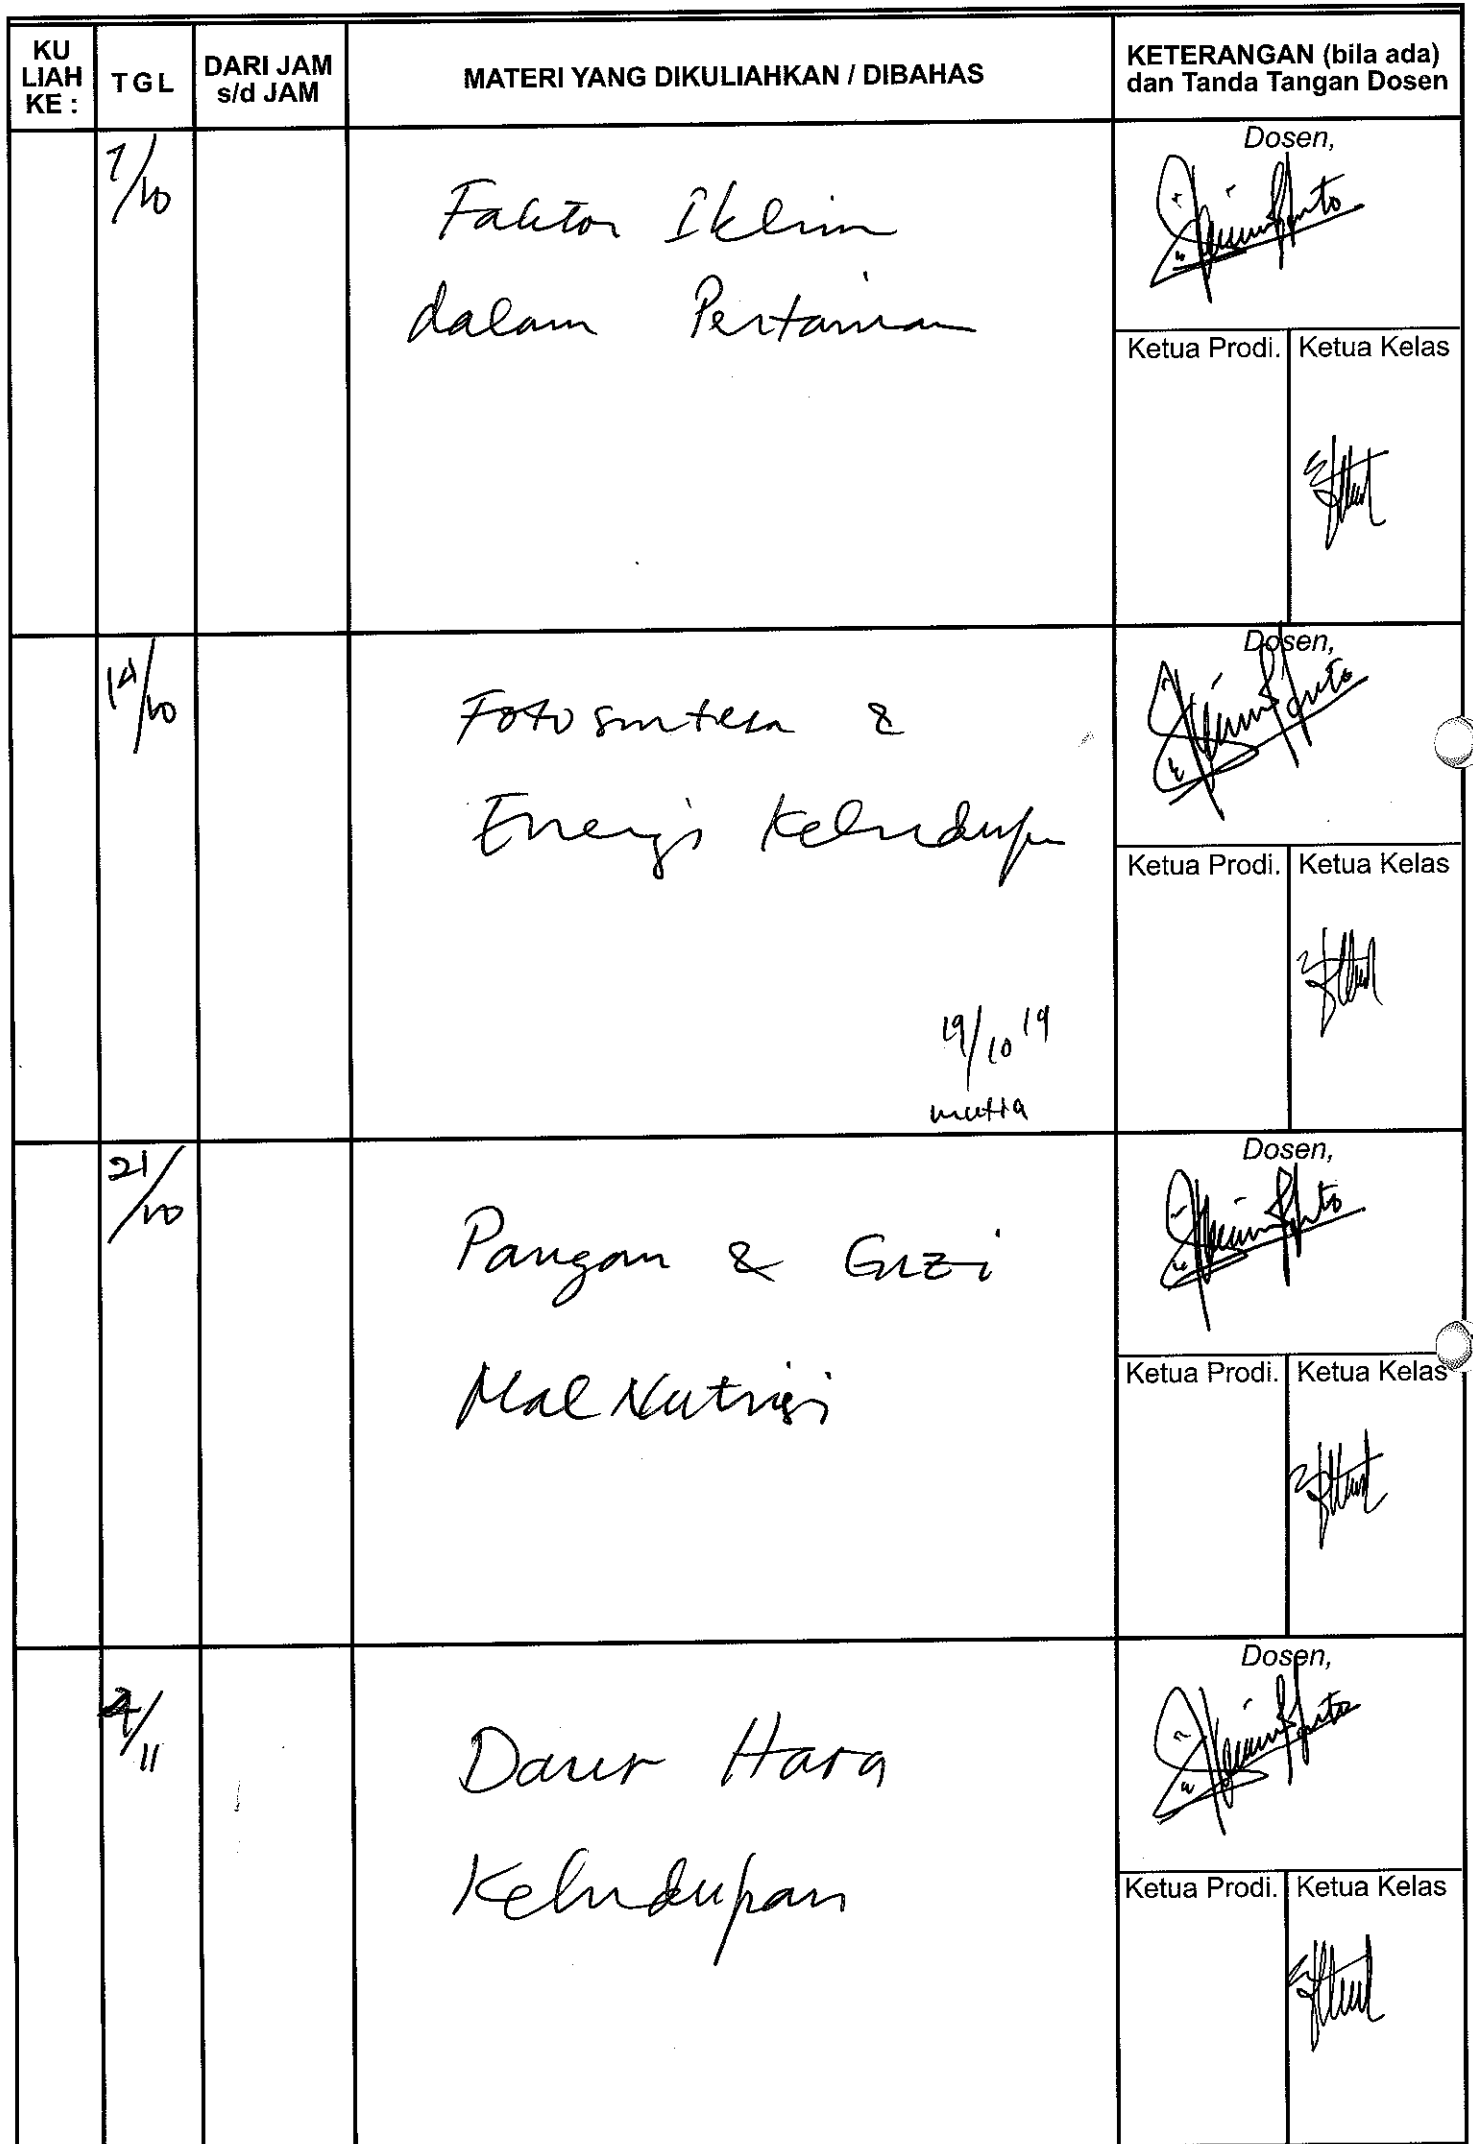 KU LIAH KE :
TGL
DARI JAM s/d JAM
MATERI YANG DIKULIAHKAN / DIBAHAS
KETERANGAN (bila ada) dan Tanda Tangan Dosen
7/10
Faktor Iklim
dalam Pertanian
Dosen,
Ketua Prodi.
Ketua Kelas
14/10
Fotosintesa &
Energi Kehidupan
19/10 19
mutia
Dosen,
Ketua Prodi.
Ketua Kelas
21/10
Pangan & Gizi
Mal Nutrisi
Dosen,
Ketua Prodi.
Ketua Kelas
4/11
Daur Hara
Kehidupan
Dosen,
Ketua Prodi.
Ketua Kelas